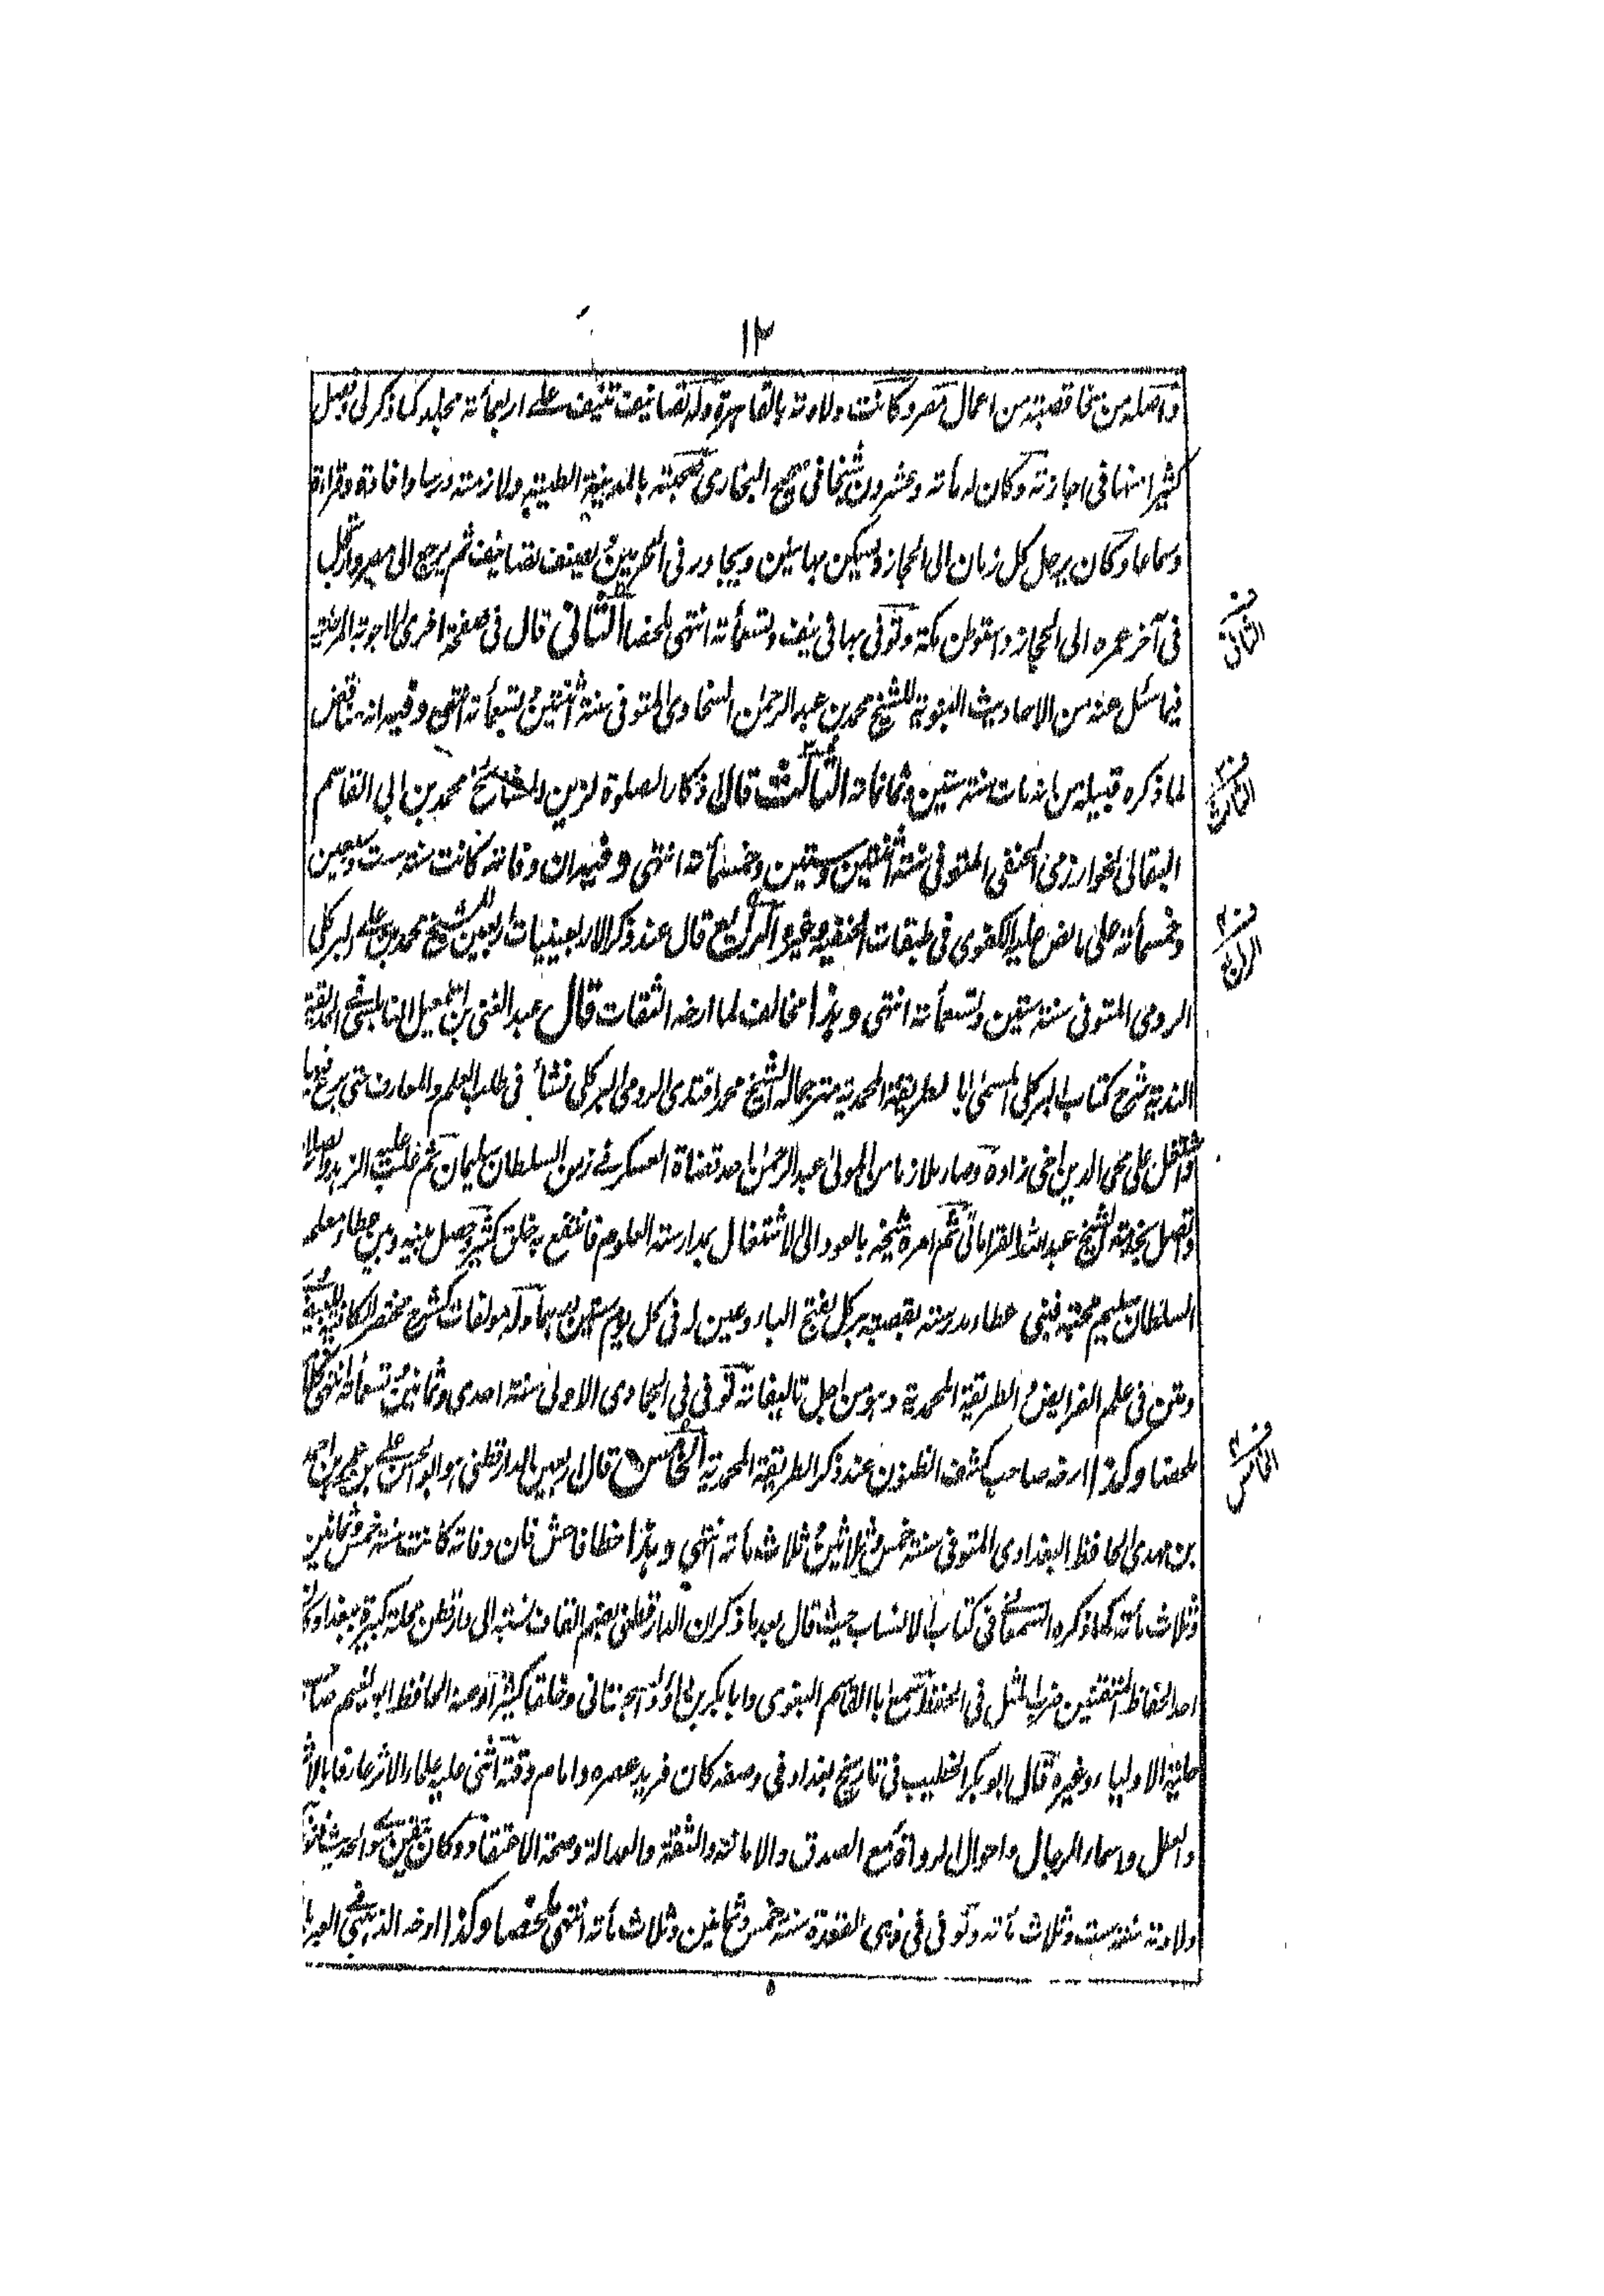 ١٢
واصله من سخا قصبة من اعمال مصر وكانت ولادته بالقاهرة وله تصانيف تنيف على اربعمأته مجلد كما ذكر لى وصل
كثيرا منها فى اجازته وكان له مأته وعشرون شيخا فى صحيح البخارى صحبته بالمدينة الطيبة ولازمته درسا وافادة وقراءة
وسماعا وكان يرحل كل زمان الى الحجاز ويسكن بها سنين ويجاور فى الحرمين ويصنف تصانيف ثم يرجع الى مصر وارتحل
فى آخر عمره الى الحجاز واستوطن مكة وتوفى بها فى نيف وتسعمأته انتهى ملخصا الثانى قال فى صفحة اخرى الاجوبة المرضية
فيما سئل عنه من الاحاديث النبوية للشيخ محمد بن عبد الرحمن السخاوى المتوفى سنة اثنتين وتسعمأته انتهى وفيه انه مناقض
لما ذكره قبيله من انه مات سنة ستين وثمانمأته الثالث قال اذكار الصلوة لزين المشائخ محمد بن ابى القاسم
البقالى الخوارزمى الحنفى المتوفى سنة اثنتين وستين وخمسمأته انتهى وفيه ان وفاته كانت سنة ست وسبعين
وخمسمأته على ما نص عليه الكفوى فى طبقات الحنفية وغيره الرابع قال عند ذكر الاربعينيات اربعين للشيخ محمد بن على البركلى
الرومى المتوفى سنة ستين وتسعمأته انتهى وهذا مخالف لما ارخه الثقات قال عبد الغنى بن اسمعيل النابلسى فى الحديقة
الندية شرح كتاب البركلى المسمى بالطريقة المحمدية مترجما له الشيخ محمد افندى الرومى البركلى نشأ فى طلب العلم والمعارف حتى برع فيها
واشتغل على محى الدين اخى زاده وصار ملازما من المولى عبد الرحمن احد قضاة العسكر فى زمن السلطان سليمان ثم غلب عليه الزهد والصلاح
واتصل بخدمة الشيخ عبد الله القرامانى ثم امره شيخه بالعود الى الاشتغال بمدارسة العلوم فانتفع به خلق كثير وحصل بينه وبين عطا معلم
السلطان سليم محبة فبنى عطا مدرسة بقصبة بركل بفتح الباء وعين له فى كل يوم ستين درهما وله مولفات كشرح مختصر الكافية
ومتن فى علم الفرايض والطريقة المحمدية وهو من اجل تاليفاته توفى فى الجمادى الاولى سنة احدى وثمانين وتسعمأته انتهى
ملخصا وكذا ارخه صاحب كشف الظنون عند ذكر الطريقة المحمدية الخامس قال اربعين الدارقطنى هو ابو الحسن على بن عمر بن احمد
بن مهدى الحافظ البغدادى المتوفى سنة خمس وثلاثين وثلاث مأته انتهى وهذا خطا فاحش فان وفاته كانت سنة خمس وثمانين
وثلاث مأته كما ذكره السمعانى فى كتاب الانساب حيث قال بعد ما ذكر ان الدارقطنى بضم القاف نسبة الى دارقطن محلة كبيرة ببغداد كان
احد الحفاظ المتقنين ضرب المثل فى الحفظ سمع ابا القاسم البغوى وابا بكر بن ابى داؤد السجستانى وخلقا كثيرا روى عنه الحافظ ابو نعيم صاحب
حلية الاولياء وغيره قال ابو بكر الخطيب فى تاريخ بغداد فى وصفه كان فريد عصره وامام وقته انتهى عليه علم الاثر عارفا بالاثر
والعلل واسماء الرجال واحوال الرواة مع الصدق والامانة والثقة والعدالة وصحة الاعتقاد وكان
ولادته سنة ست وثلاث مأته وتوفى فى ذى القعدة سنة خمس وثمانين وثلاث مأته انتهى ملخصا وكذا ارخه الذهبى فى العبر
الثانى
الثالث
الرابع
الخامس